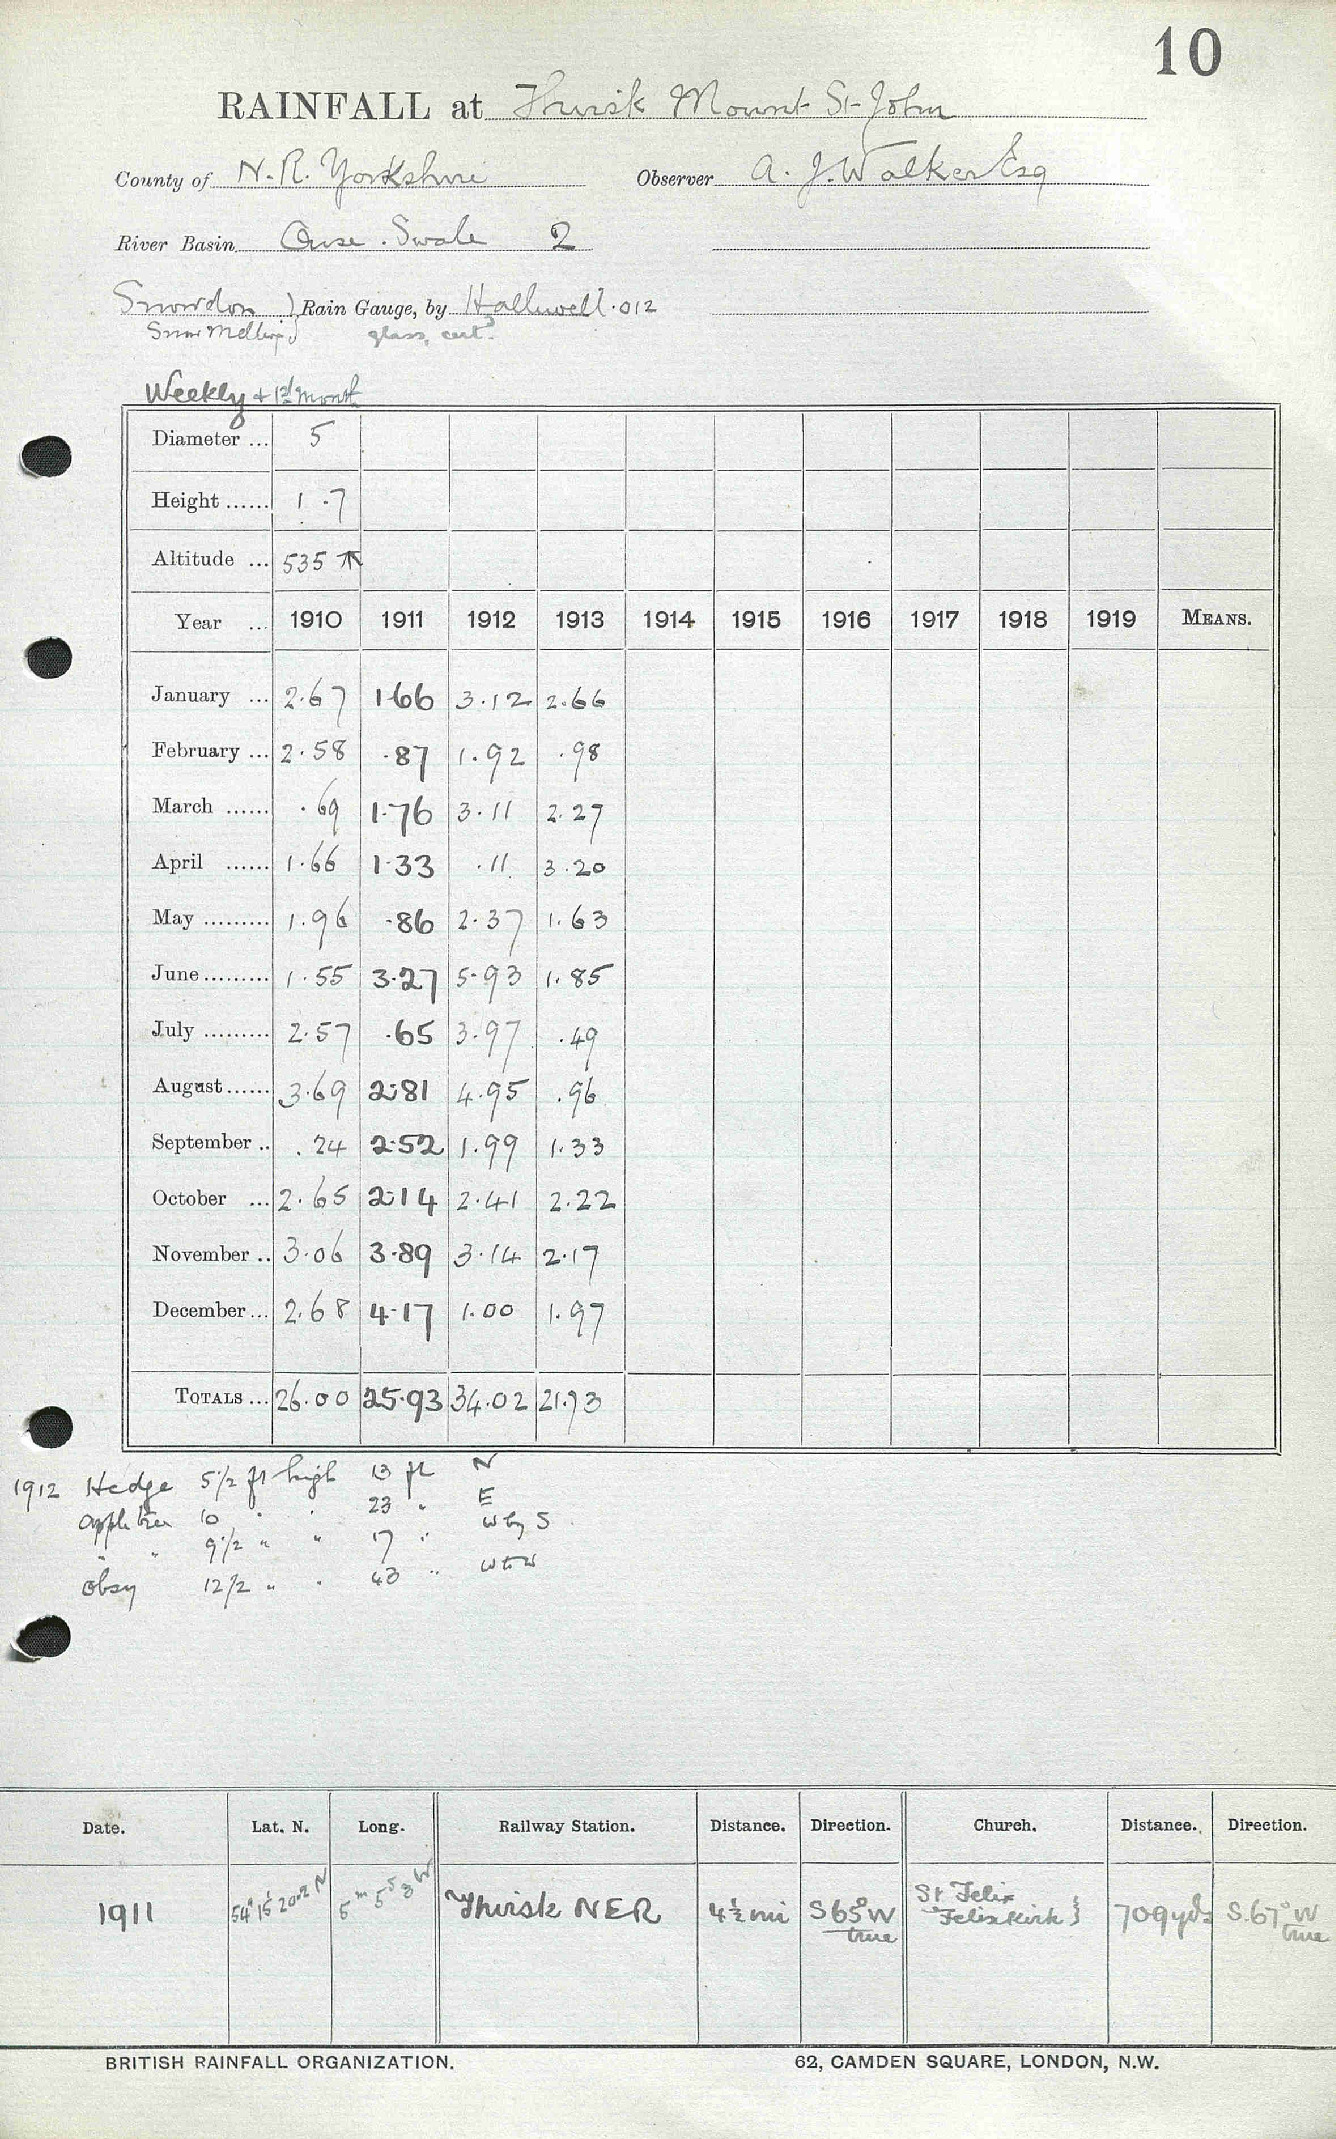 10
RAINFALL at Thirsk Mount St John
County of N.R. Yorkshire Observer A. J. Walker Esq
River Basin Ouse. Swale 2
Snowdon } Rain Gauge, by Halliwell .012
Snow Melting } glass, cert^d
Weekly + 1st month
Diameter ... 5
Height ...... 1 .7
Altitude ... 535
Year ... 1910 1911 1912 1913 1914 1915 1916 1917 1918 1919 MEANS.
January ... 2.67 1.66 3.12 2.66
February ... 2.58 .87 1.92 .98
March ...... .69 1.76 3.11 2.27
April ...... 1.66 1.33 .11 3.20
May ......... 1.96 .86 2.37 1.63
June ......... 1.55 3.27 5.93 1.85
July ......... 2.57 .65 3.97 .49
August ...... 3.69 2.81 4.95 .96
September .. .24 2.52 1.99 1.33
October ... 2.65 2.14 2.41 2.22
November .. 3.06 3.89 3.14 2.17
December ... 2.68 4.17 1.00 1.97
TOTALS ... 26.00 25.93 34.02 21.73
1912 Hedge 5 1/2 ft high 13 ft N
apple tree 10 " " 23 " E
" " 9 1/2 " " 17 " W by S
obsy 12 1/2 " " 43 "
Date. Lat. N. Long. Railway Station. Distance. Direction. Church. Distance. Direction.
1911 54° 15' 20.2 N 5^s 3 W Thirsk NER 4½ mi S 65° W true St Felix Felixkirk } 709 yds S. 67° W true
BRITISH RAINFALL ORGANIZATION. 62, CAMDEN SQUARE, LONDON, N.W.